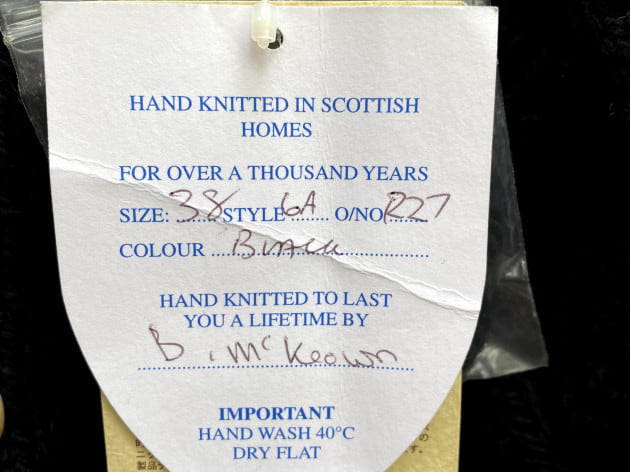 HAND KNITTED IN SCOTTISH
HOMES
FOR OVER A THOUSAND YEARS
SIZE: 38 STYLE 6A O/NO R27
COLOUR Black
HAND KNITTED TO LAST
YOU A LIFETIME BY
B. McKeown
IMPORTANT
HAND WASH 40°C
DRY FLAT